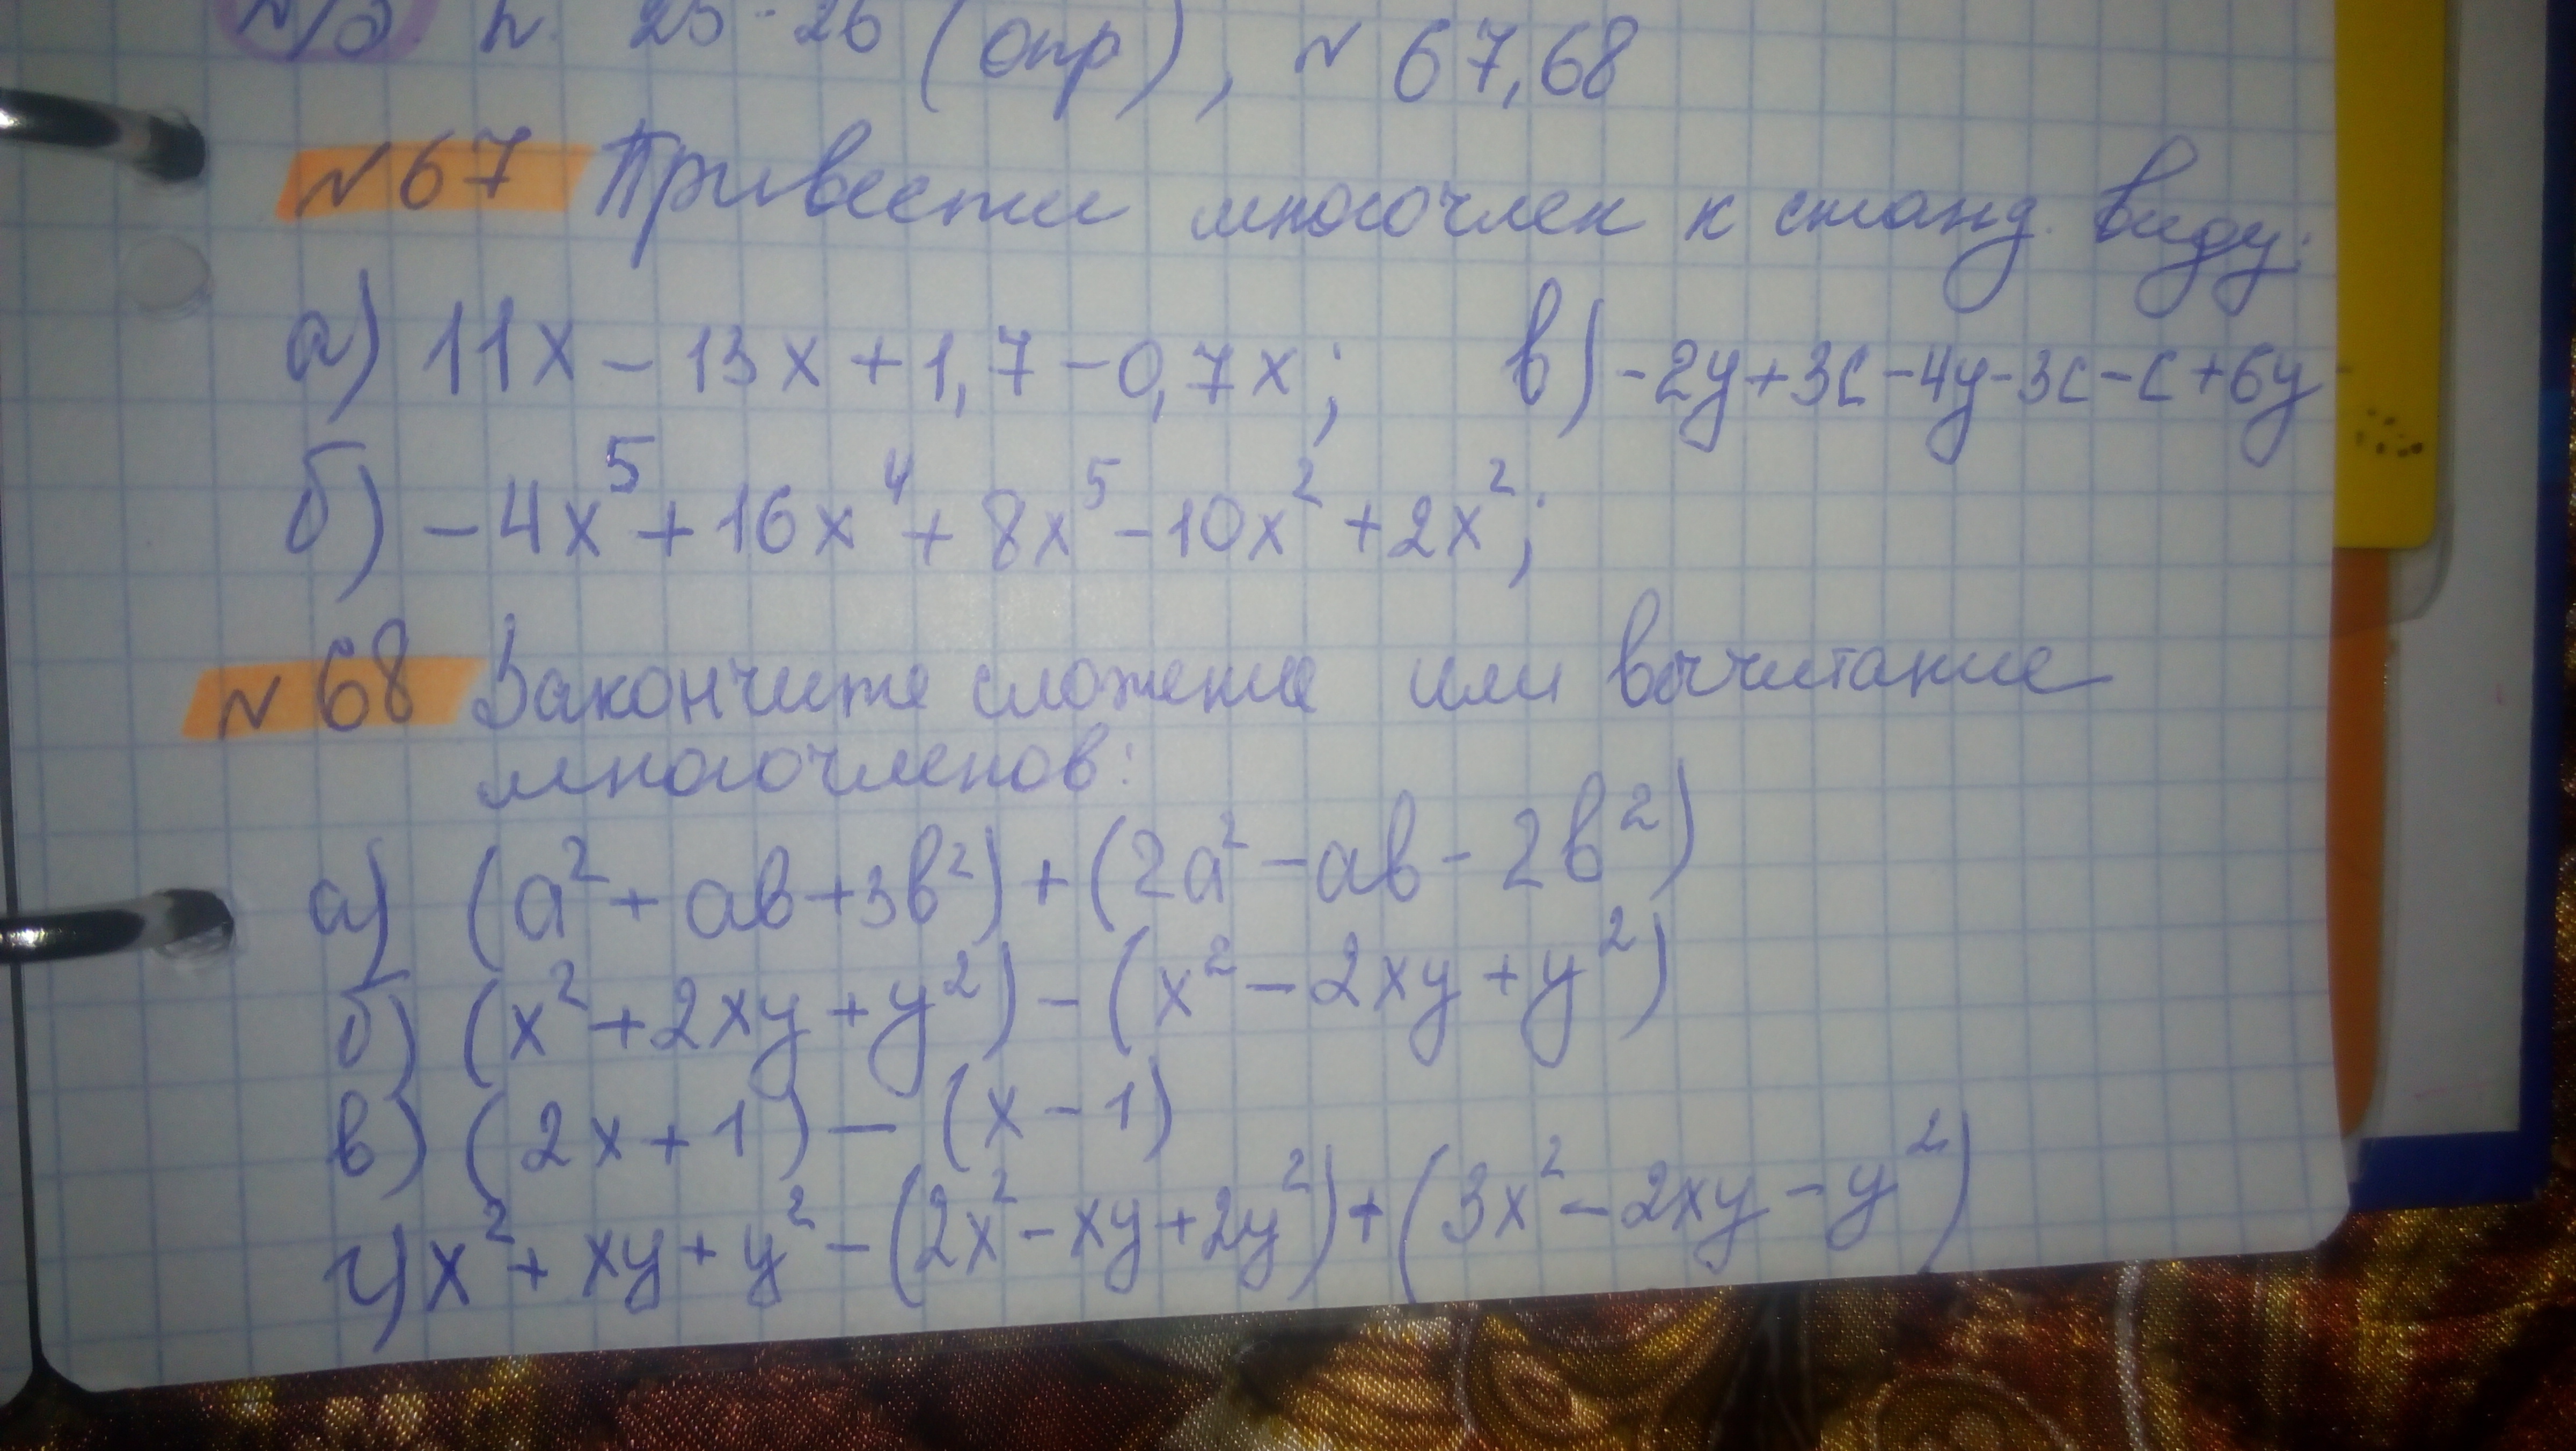 п. 25-26 (опр), № 67,68
№ 67 Привести многочлен к станд. виду:
а) 11x - 13x + 1,7 - 0,7x; в) -2y+3c-4y-3c-c+6y
б) -4x⁵ + 16x⁴ + 8x⁵ - 10x² + 2x²;
№ 68 Закончите сложение или вычитание
многочленов:
а) (a² + ab + 3b²) + (2a² - ab - 2b²)
б) (x² + 2xy + y²) - (x² - 2xy + y²)
в) (2x + 1) - (x - 1)
г) x² + xy + y² - (2x² - xy + 2y²) + (3x² - 2xy - y²)